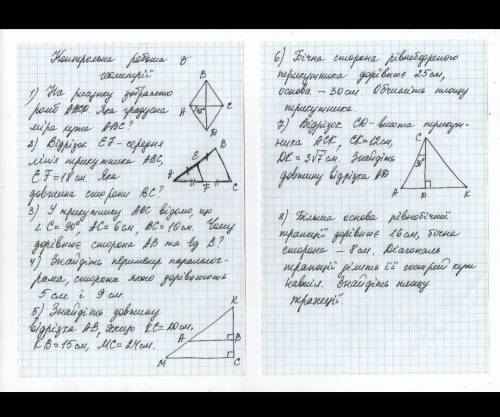 Контрольна робота з
геометрії
1) На рисунку зображено
ромб ABCD. Яка градусна
міра кута ABC?
2) Відрізок EF - середня
лінія трикутника ABC,
EF=18см. Яка
довжина сторони BC?
3) У трикутнику ABC відомо, що
∠C = 90°, AC = 6см, BC = 10см. Чому
дорівнює сторона AB та tg B?
4) Знайдіть периметр паралелог-
рама, сторони якого дорівнюють
5см і 9см.
5) Знайдіть довжину
відрізка AB, якщо KC = 20см,
KB = 15см, MC = 24см.
B
A
C
D
B
E
A
F
C
K
A
B
M
C
6) Бічна сторона рівнобедреного
трикутника дорівнює 25см,
основа - 30см. Обчисліть площу
трикутника.
7) Відрізок CD - висота трикут-
ника ACK, CK = 12см,
DK = 3√7 см. Знайдіть
довжину відрізка AD
8) Більша основа рівнобічної
трапеції дорівнює 16см, бічна
сторона - 8см. Діагональ
трапеції ділить її гострий кут
навпіл. Знайдіть площу
трапеції.
C
30°
A
D
K